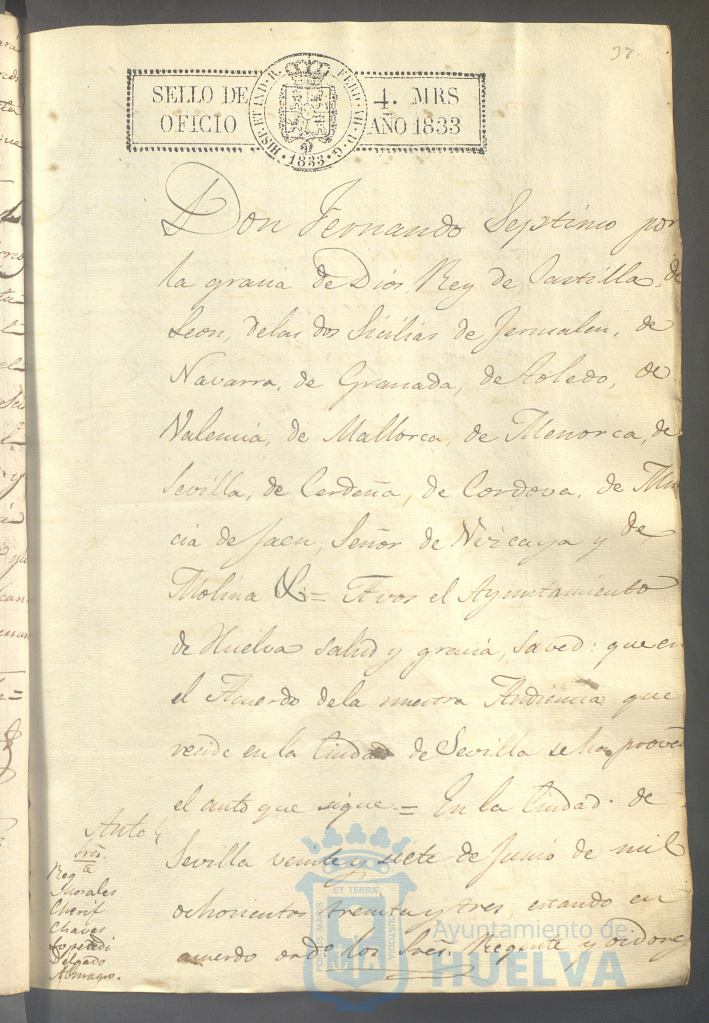 37.
SELLO DE
OFICIO
4. MRS
AÑO 1833
HISP. ET IND. R. FERD. VII. D. G. 1833
Don Fernando Septimo por
la gracia de Dios, Rey de Castilla, de
Leon, delas dos Sicilias de Jerusalen, de
Navarra, de Granada, de Toledo, de
Valencia, de Mallorca, de Menorca, de
Sevilla, de Cerdeña, de Cordova, de Mur
cia de Jaen, Señor de Vizcaya y de
Molina &= A vos el Ayuntamiento
de Huelva salud y gracia, saved: que en
el Acuerdo dela nuestra Audiencia que
reside en la Ciudad de Sevilla se ha proveido
el auto que sigue = En la Ciudad de
Sevilla veinte y siete de Junio de mil
ochocientos treinta y tres, estando en
acuerdo ordº los Sres. Regente y oidores
Auto
Sres.
Reg te
Morales
Cherif
Chaves
Lopetedi
Delgado
Almagro.
PORTUS MARIS ET TERRÆ CUSTODIA
Ayuntamiento de
HUELVA